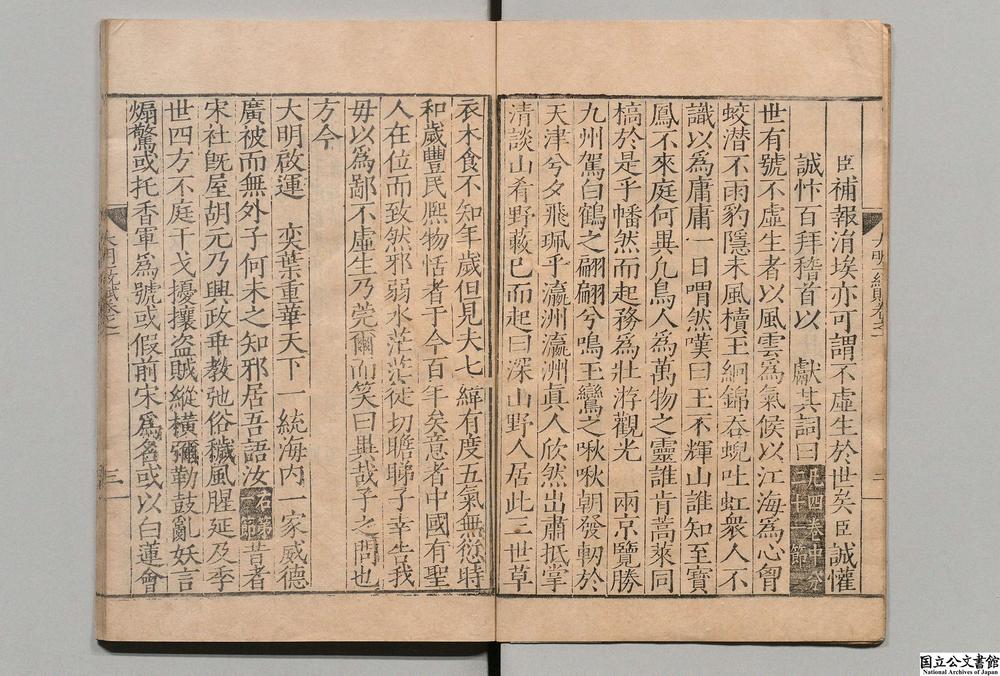 臣補報涓埃亦可謂不虛生於世矣臣誠懽
誠忭百拜稽首以　獻其詞曰凡四卷中分二十一節
世有號不虛生者以風雲為氣候以江海為心胷
蛟潜不雨豹隱未風櫝王絅錦吞蜺吐虹衆人不
識以為庸庸一日喟然嘆曰王不輝山誰知至寳
鳳不來庭何異凡鳥人為萬物之靈誰肯蒿萊同
槁於是乎幡然而起務為壯游觀光　兩京覽勝
九州駕白鶴之翩翩兮鳴玉鸞之啾啾朝發軔於
天津兮夕飛珮乎瀛洲瀛洲真人欣然出肅抵掌
清談山肴野蔌已而起曰深山野人居此三世草
衣木食不知年歲但見夫七緯有度五氣無愆時
和歲豐民熈物恬者于今百年矣意者中國有聖
人在位而致然邪弱水茫茫徒切瞻睇子幸告我
毋以為鄙不虛生乃莞爾而笑曰異哉子之問也
方今
大明啟運　奕葉重華天下一統海内一家威德
廣被而無外子何未之知邪居吾語汝右第一節昔者
宋社旣屋胡元乃興政乖教弛俗穢風腥延及季
世四方不庭干戈擾攘盜賊縱橫彌勒鼓亂妖言
煽驚或托香軍為號或假前宋為名或以白蓮會
大明一統賦卷之一
三
国立公文書館
National Archives of Japan